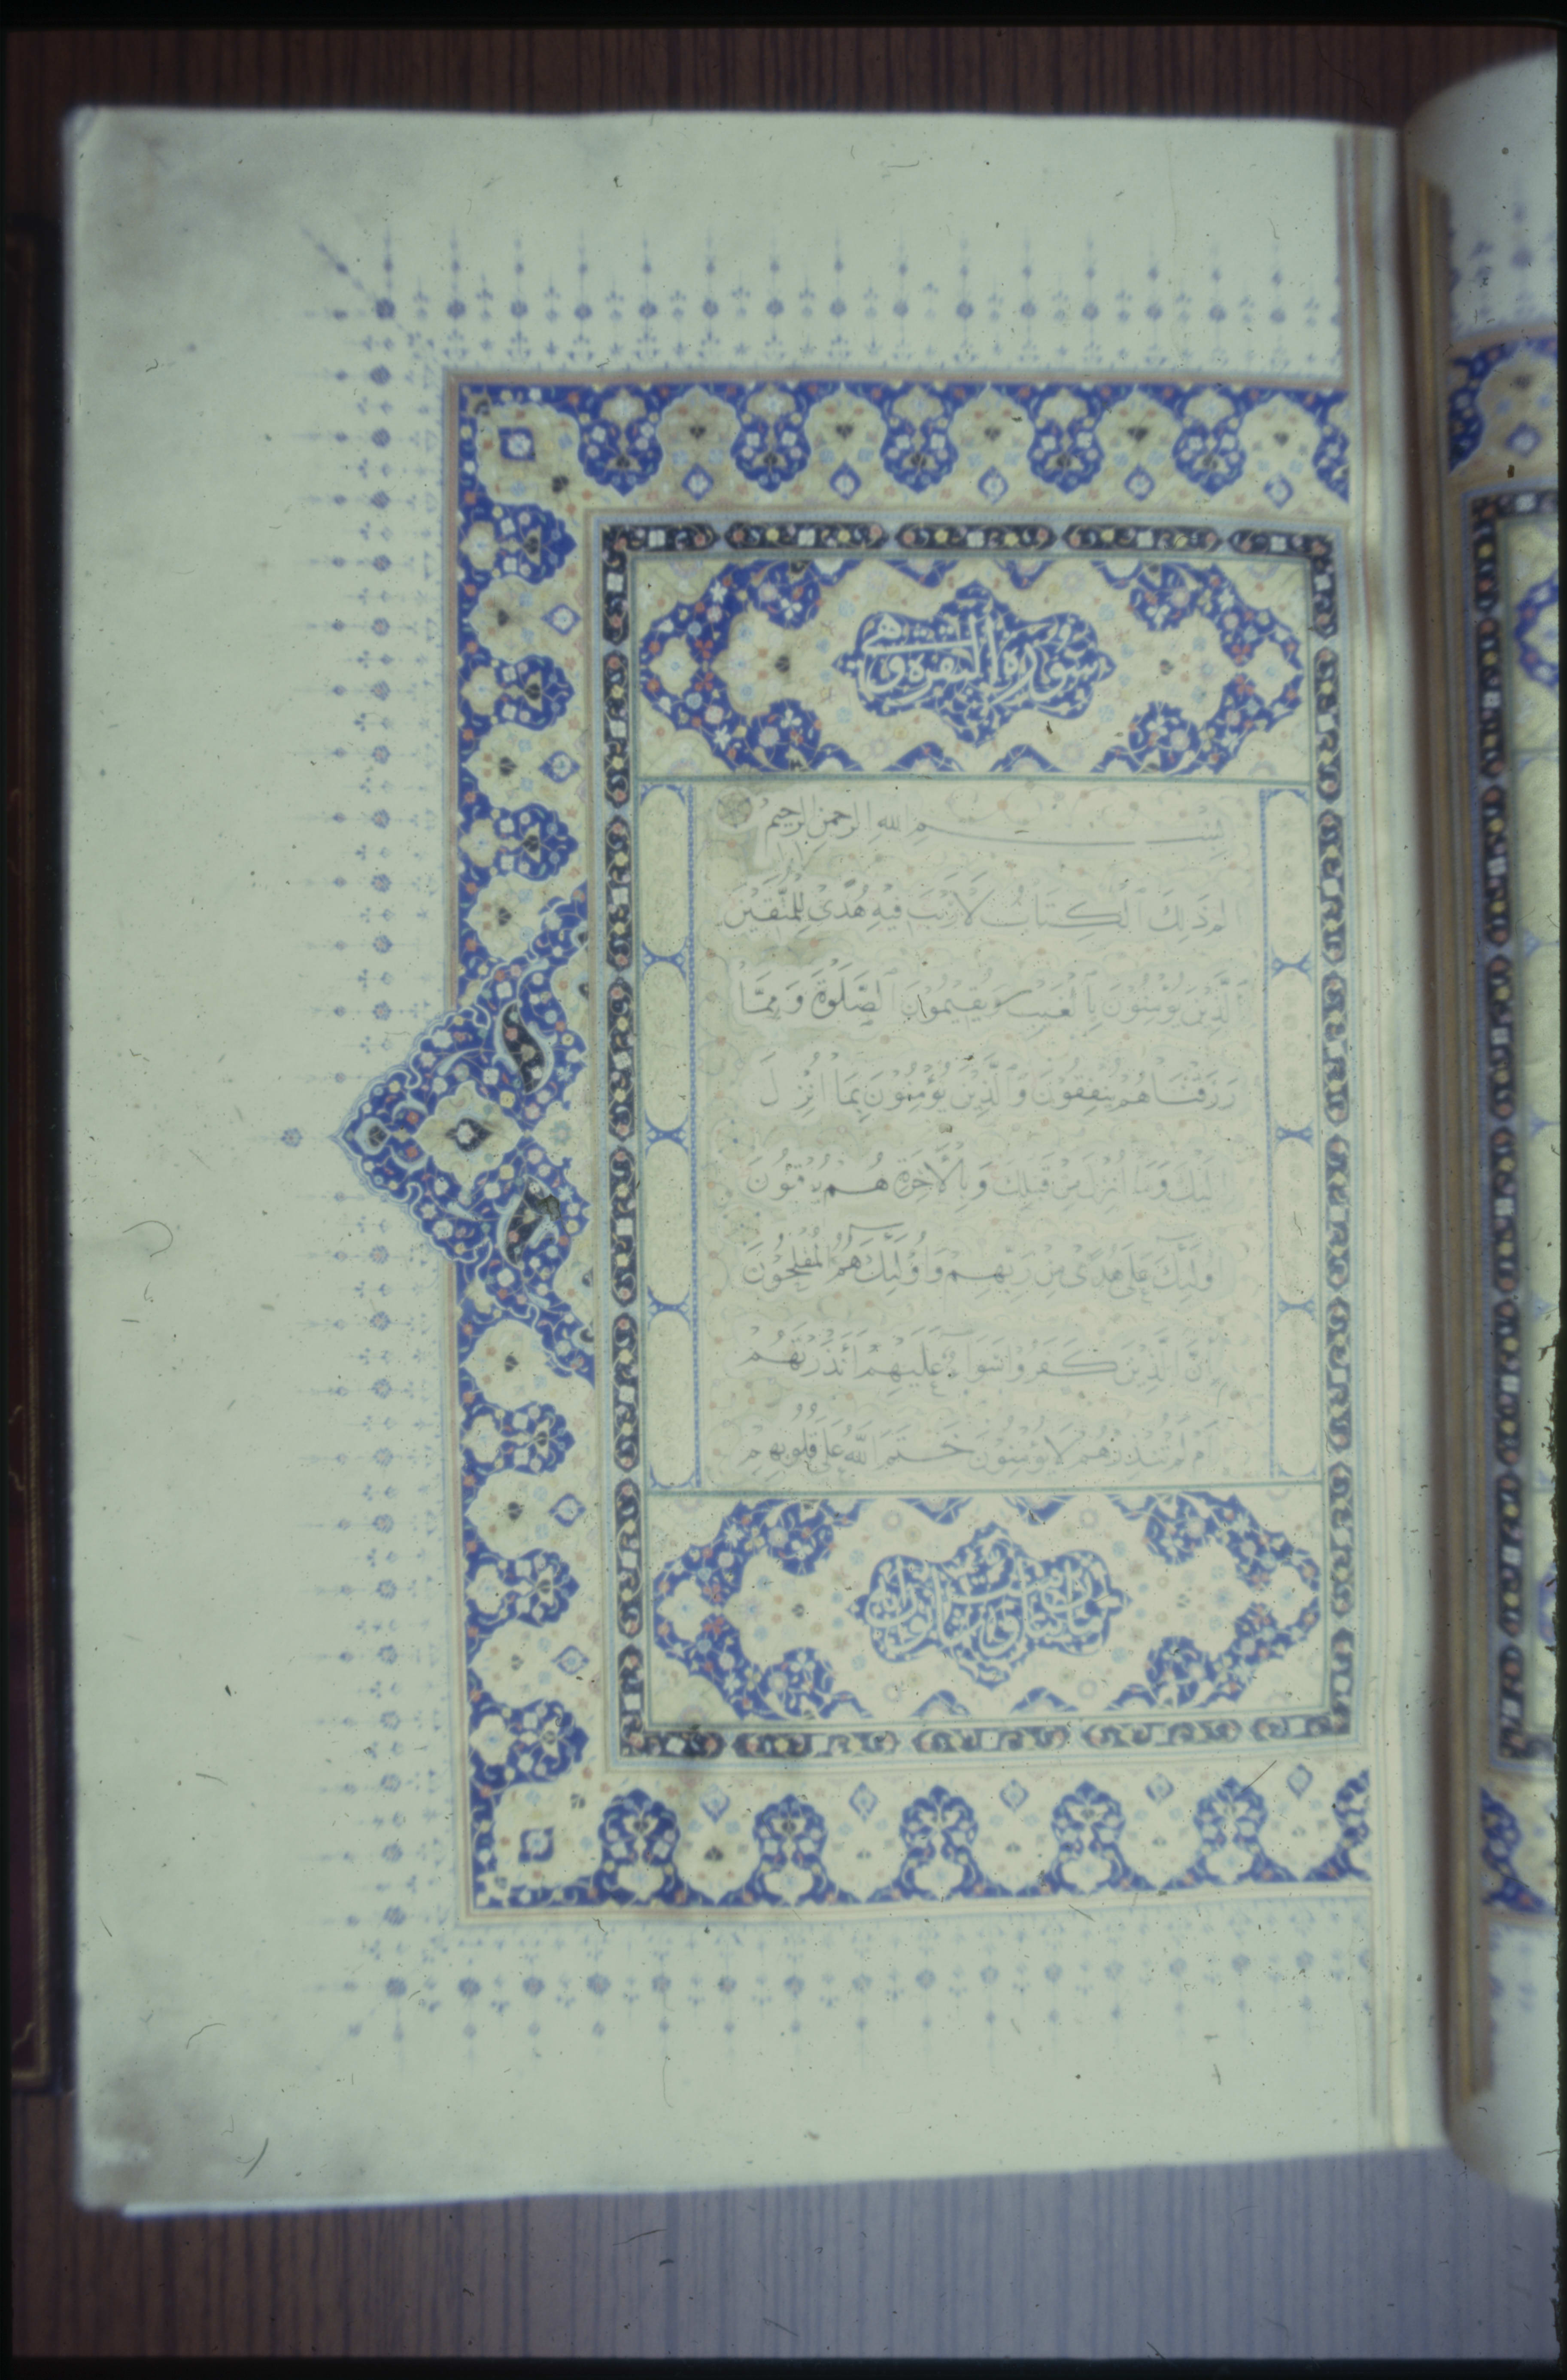 سورة البقرة وهي
بسم الله الرحمن الرحيم
الم ذَلِكَ ٱلْكِتَابُ لَا رَيْبَ فِيهِ هُدًى لِلْمُتَّقِينَ
ٱلَّذِينَ يُؤْمِنُونَ بِٱلْغَيْبِ وَيُقِيمُونَ ٱلصَّلَوٰةَ وَمِمَّا
رَزَقْنَاهُمْ يُنْفِقُونَ وَٱلَّذِينَ يُؤْمِنُونَ بِمَا أُنْزِلَ
إِلَيْكَ وَمَا أُنْزِلَ مِنْ قَبْلِكَ وَبِالْآخِرَةِ هُمْ يُوقِنُونَ
أُولَئِكَ عَلَى هُدًى مِنْ رَبِّهِمْ وَأُولَئِكَ هُمُ الْمُفْلِحُونَ
إِنَّ الَّذِينَ كَفَرُوا سَوَاءٌ عَلَيْهِمْ أَأَنْذَرْتَهُمْ
أَمْ لَمْ تُنْذِرْهُمْ لَا يُؤْمِنُونَ خَتَمَ اللَّهُ عَلَى قُلُوبِهِمْ